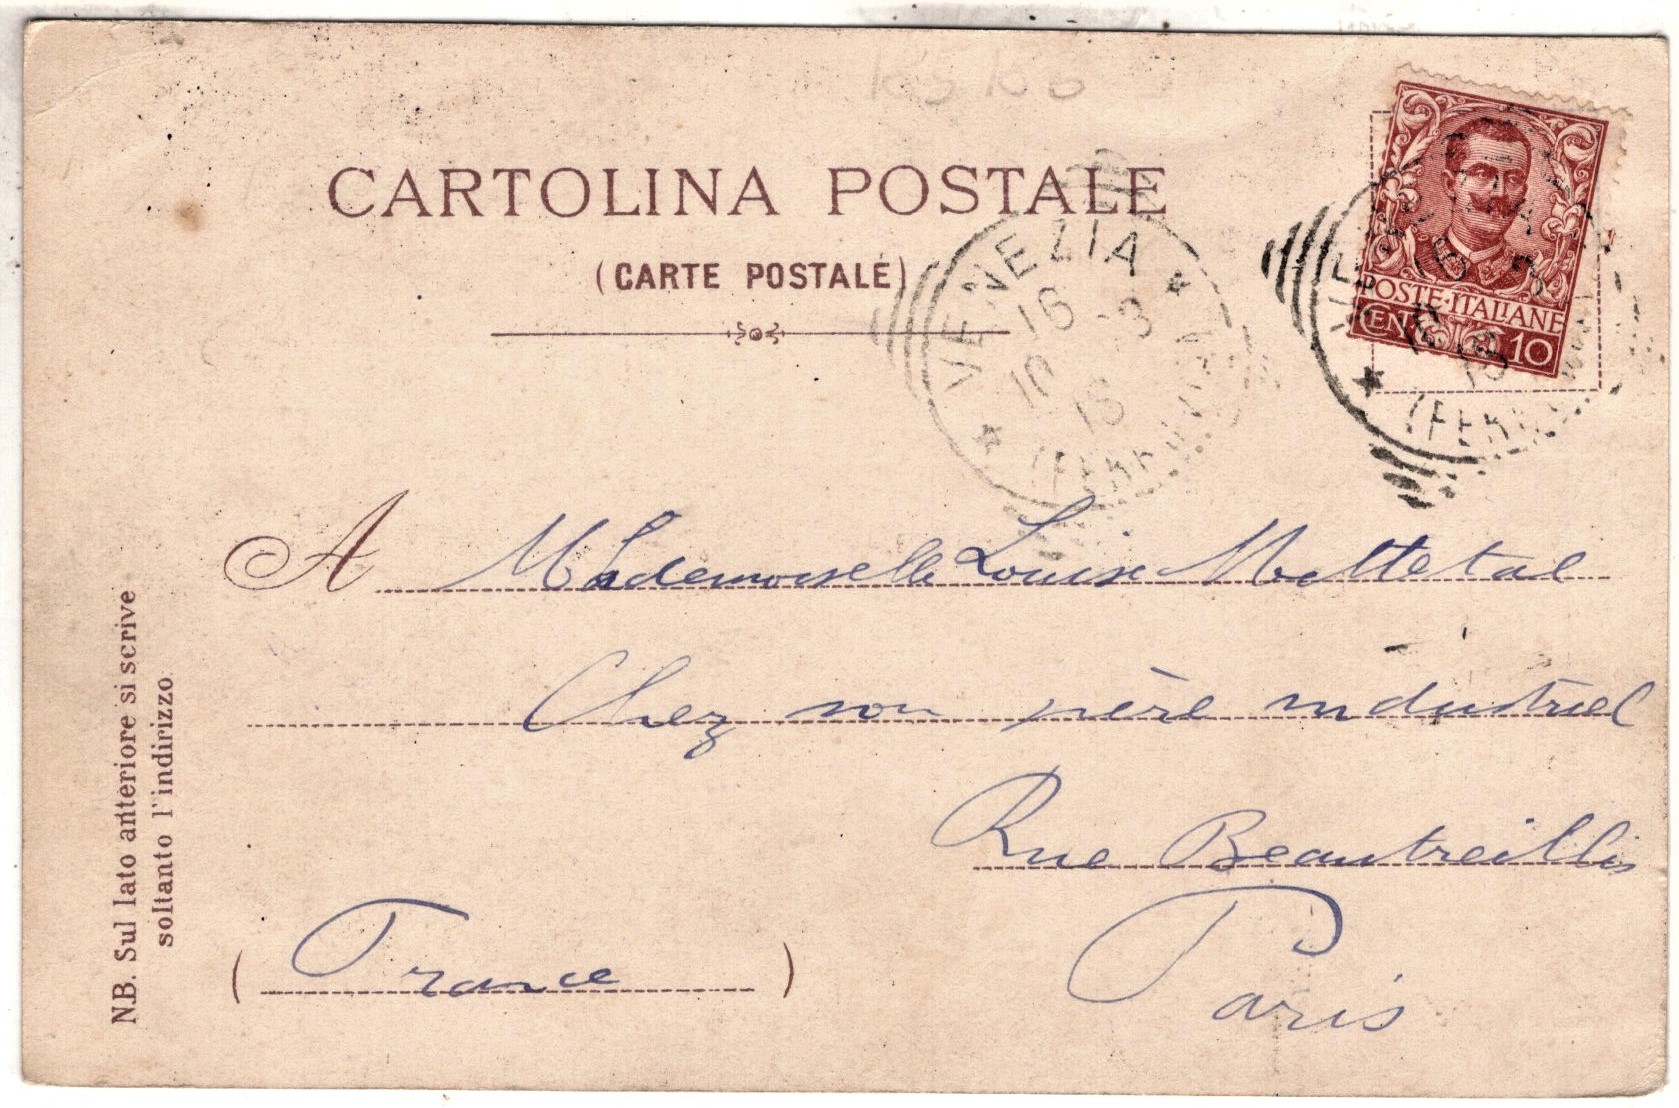 CARTOLINA POSTALE
(CARTE POSTALE)
VENEZIA
16 - 3
10 16
(FERROVIA)
POSTE·ITALIANE
CENT 10
(FERR
A Mademoiselle Louise Mettetal
Chez son père industriel
Rue Beautreillis
Paris
(France)
N.B. Sul lato anteriore si scrive
soltanto l'indirizzo.